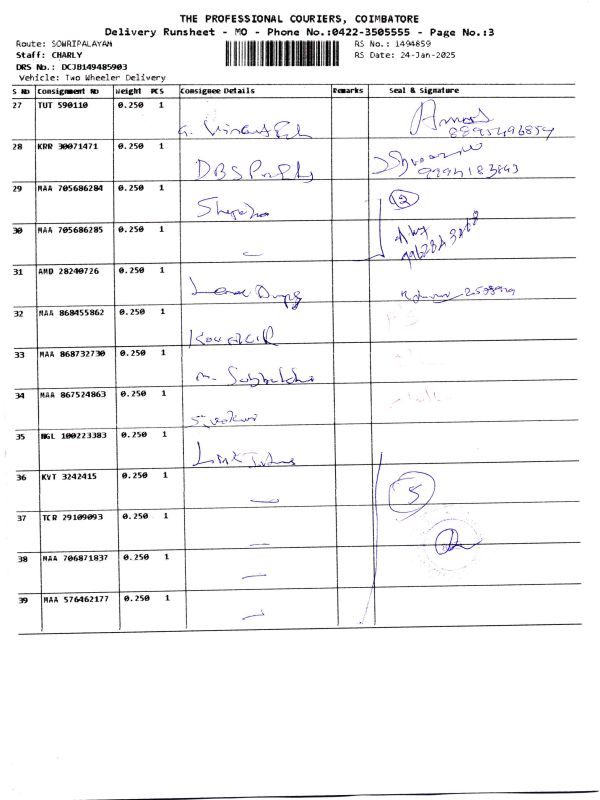 THE PROFESSIONAL COURIERS, COIMBATORE
Delivery Runsheet - MO - Phone No.:0422-3505555 - Page No.:3
Route: SOWRIPALAYAM
RS No.: 1494859
Staff: CHARLY
RS Date: 24-Jan-2025
DRS No.: DCJB149485903
Vehicle: Two Wheeler Delivery
S No Consignment No Weight PCS Consignee Details Remarks Seal & Signature
27 TUT 590110 0.250 1
28 KRR 30071471 0.250 1 DBS
29 MAA 705686284 0.250 1 2
30 MAA 705686285 0.250 1
31 AMD 28240726 0.250 1
32 MAA 868455862 0.250 1
33 MAA 868732730 0.250 1
34 MAA 867524863 0.250 1
35 NGL 100223383 0.250 1
36 KVT 3242415 0.250 1 5
37 TCR 29109093 0.250 1
38 MAA 706871837 0.250 1
39 MAA 576462177 0.250 1